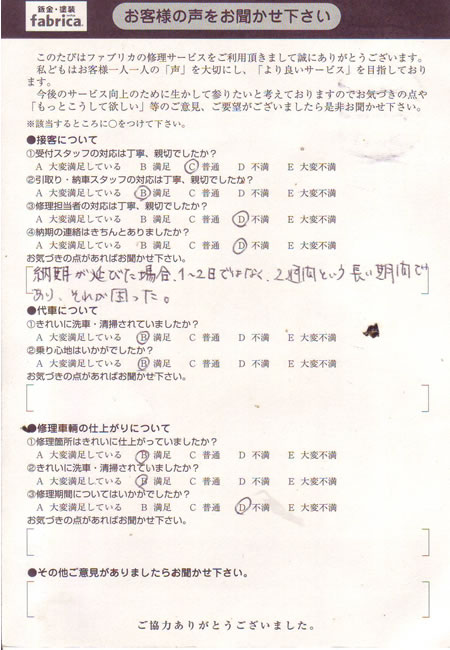 鈑金・塗装
fabrica.
お客様の声をお聞かせ下さい
このたびはファブリカの修理サービスをご利用頂きまして誠にありがとうございます。
私どもはお客様一人一人の「声」を大切にし、「より良いサービス」を目指しており
ます。
今後のサービス向上のために生かして参りたいと考えておりますのでお気づきの点や
「もっとこうして欲しい」等のご意見、ご要望がございましたら是非お聞かせ下さい。
※該当するところに○をつけて下さい。
●接客について
①受付スタッフの対応は丁寧、親切でしたか？
A 大変満足している B 満足 C 普通 D 不満 E 大変不満
②引取り・納車スタッフの対応は丁寧、親切でしたか？
A 大変満足している B 満足 C 普通 D 不満 E 大変不満
③修理担当者の対応は丁寧、親切でしたか？
A 大変満足している B 満足 C 普通 D 不満 E 大変不満
④納期の連絡はきちんとありましたか？
A 大変満足している B 満足 C 普通 D 不満 E 大変不満
お気づきの点があればお聞かせ下さい。
納期が延びた場合、1～2日ではなく、2週間という長い期間で
あり、それが困った。
●代車について
①きれいに洗車・清掃されていましたか？
A 大変満足している B 満足 C 普通 D 不満 E 大変不満
②乗り心地はいかがでしたか？
A 大変満足している B 満足 C 普通 D 不満 E 大変不満
お気づきの点があればお聞かせ下さい。
●修理車輌の仕上がりについて
①修理箇所はきれいに仕上がっていましたか？
A 大変満足している B 満足 C 普通 D 不満 E 大変不満
②きれいに洗車・清掃されていましたか？
A 大変満足している B 満足 C 普通 D 不満 E 大変不満
③修理期間についてはいかがでしたか？
A 大変満足している B 満足 C 普通 D 不満 E 大変不満
お気づきの点があればお聞かせ下さい。
●その他ご意見がありましたらお聞かせ下さい。
ご協力ありがとうございました。